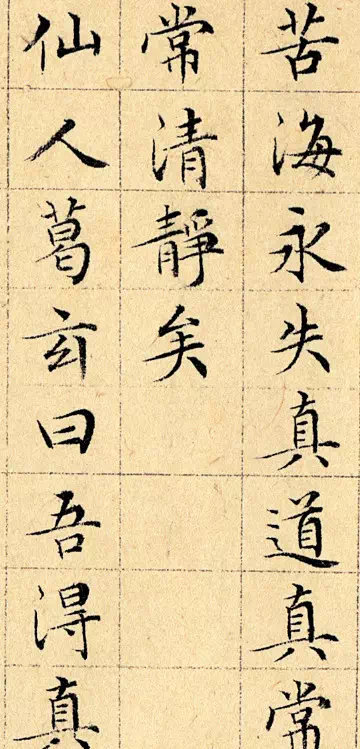 苦海永失真道真常
常清靜矣
仙人葛玄曰吾得真